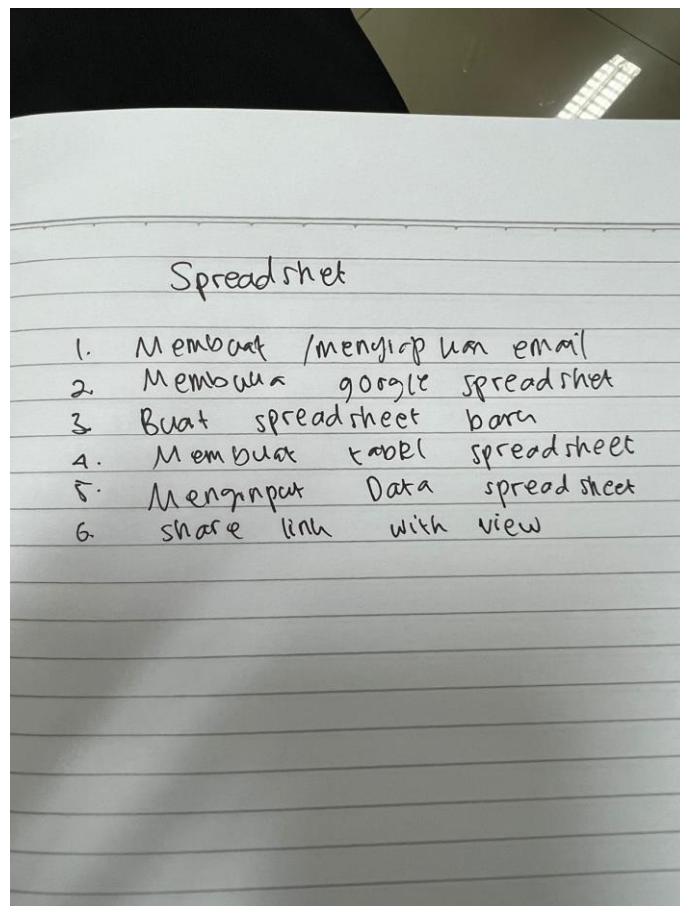 Spreadshet
1. Membuat /menyiapkan email
2. Membuka google spreadshet
3. Buat spreadsheet baru
4. Membuat tabel spreadsheet
5. Menginput Data spreadsheet
6. share link with view